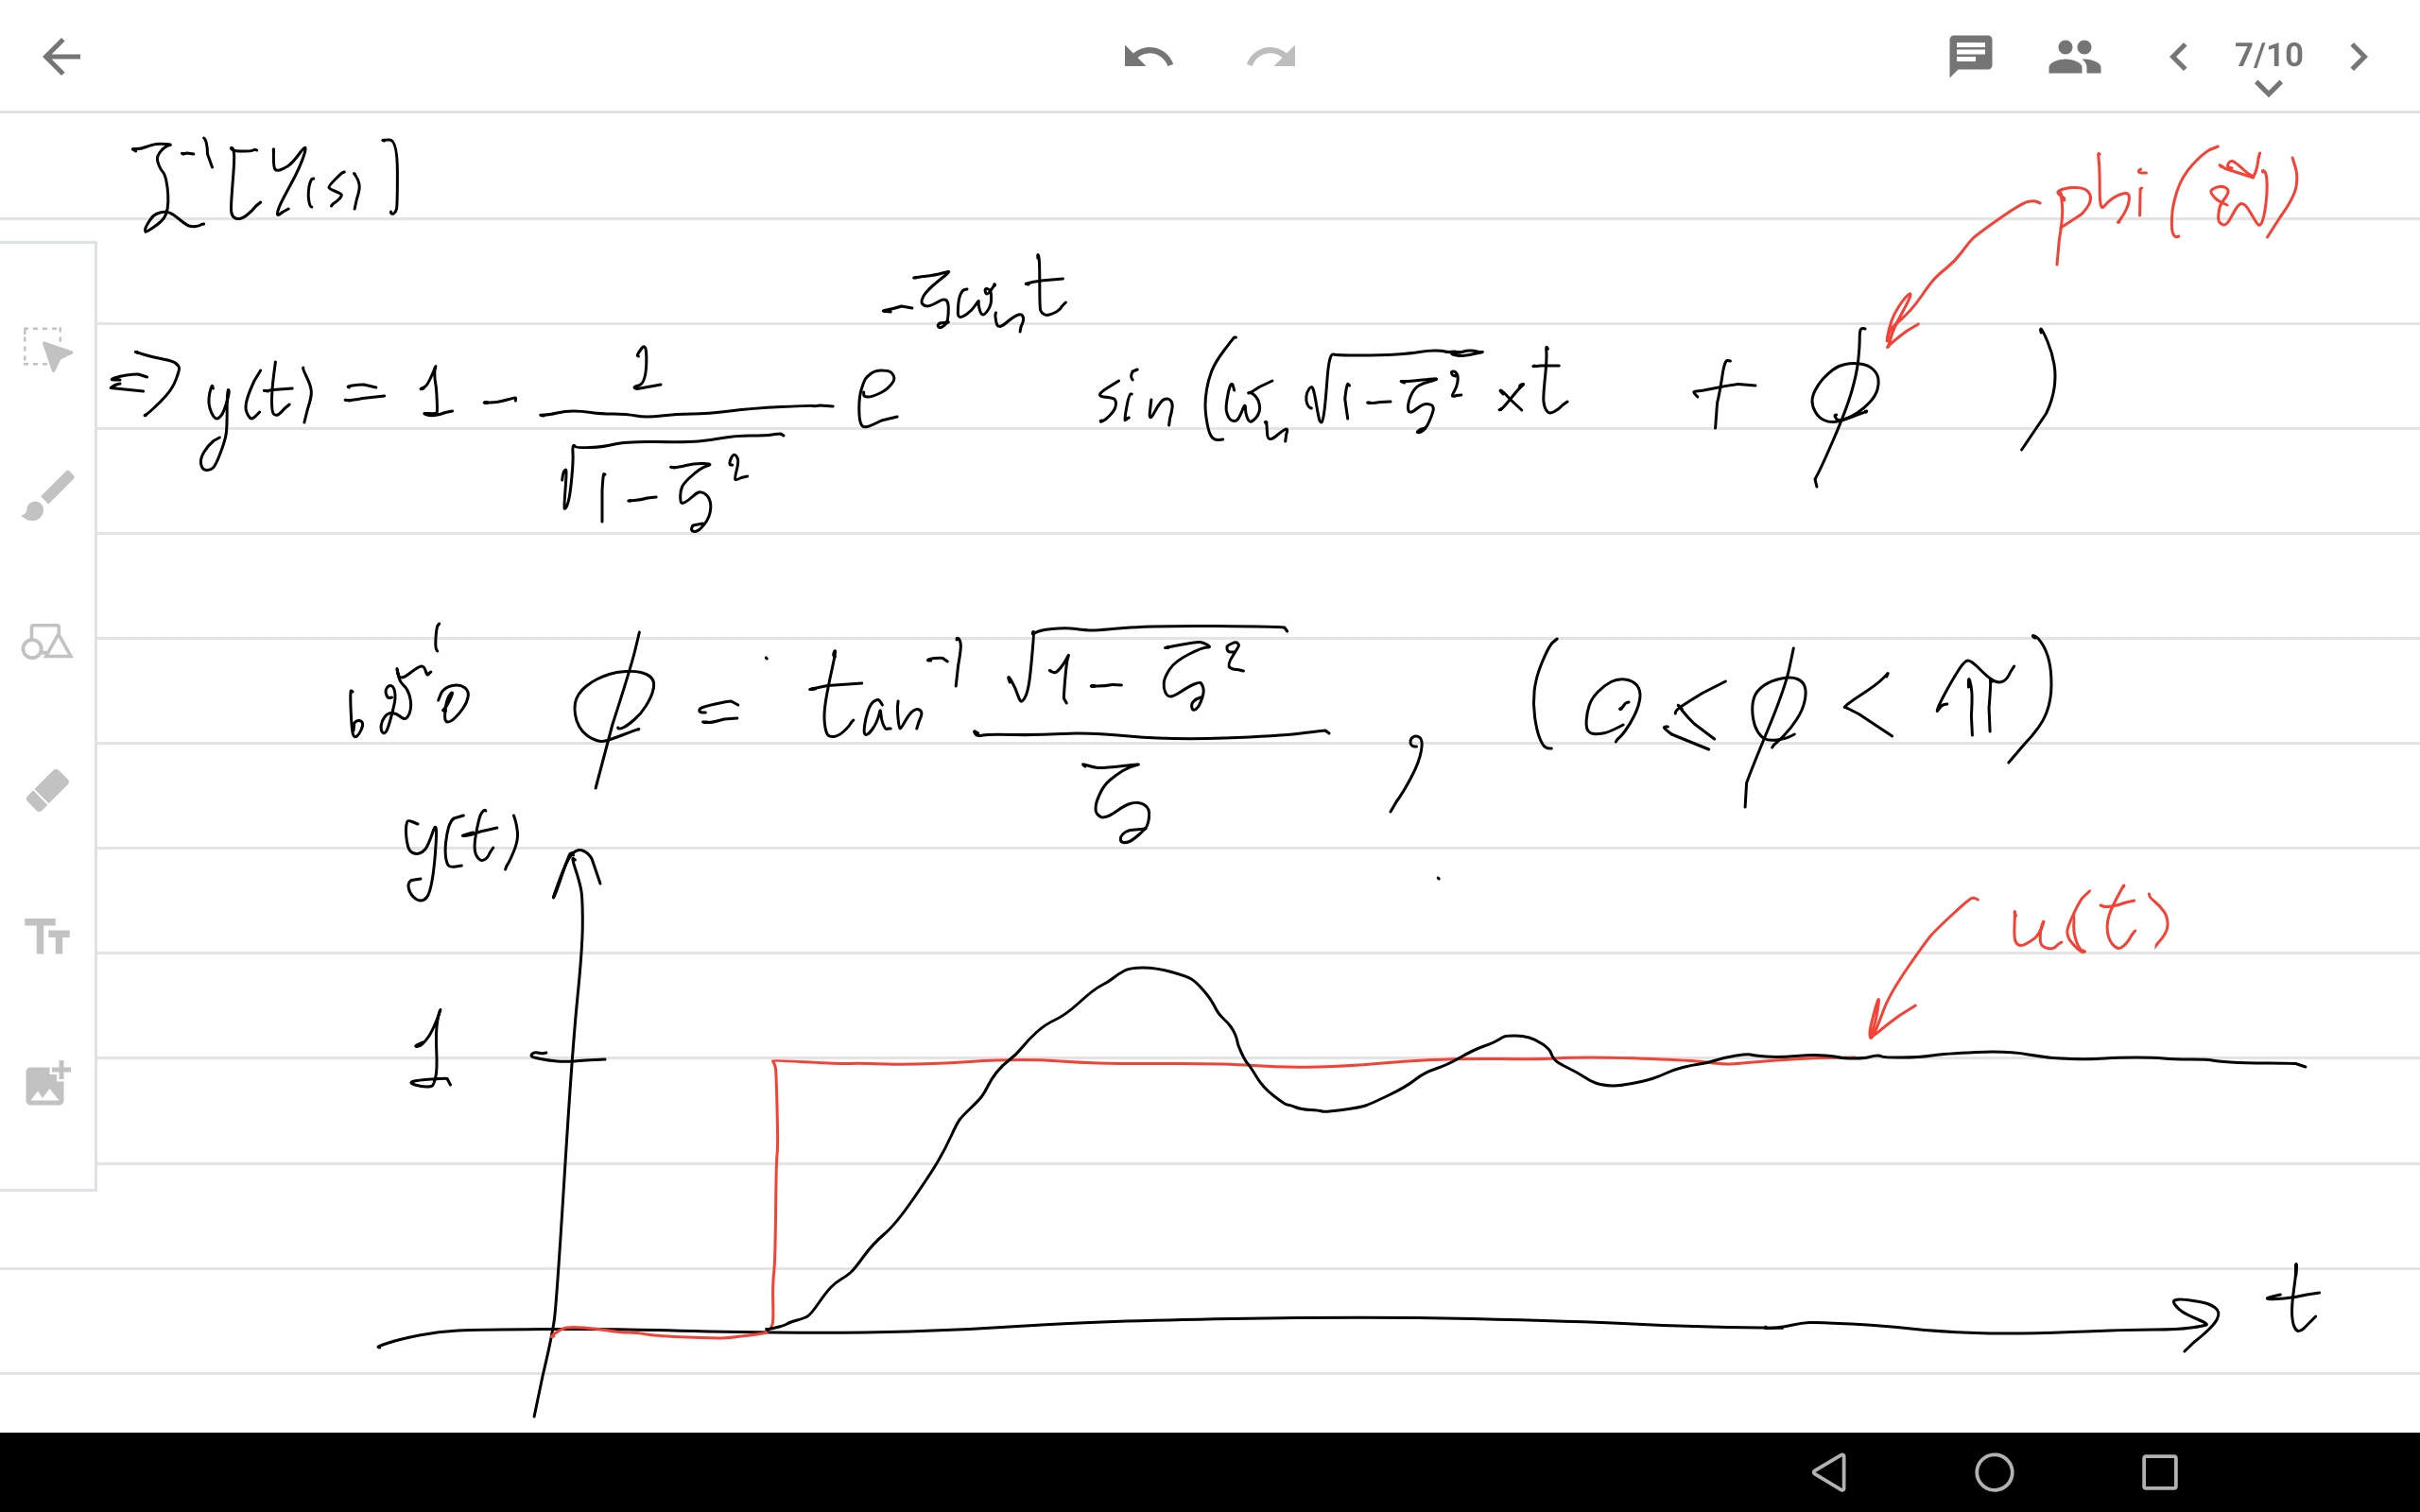 7/10
ℒ⁻¹[Y(s)]
phi (ฟี)
⇒ y(t) = 1 - 1/√(1-ζ²) e^(-ζωₙt) sin(ωₙ√(1-ζ²) × t + φ)
เมื่อ φ = tan⁻¹ √(1-ζ²)/ζ , (0 < φ < π)
y(t)
u(t)
1
t